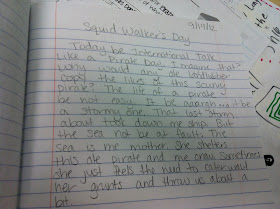 9/19/12
Squid Walker's Day
Today be International Talk
Like a Pirate Day. Imagine that?
Why would any ole landlubber
copy the likes of this scurvy
pirate? The life of a pirate
be not easy. It be aaarrgh may it be
a stormy one. That last storm
about tost down me ship. But
the sea not be at fault. The
sea is me mother. She shelters
this ole pirate and me crew. Sometimes
she just feels the need to caterwaul
her grunts and throw us about a
bit.